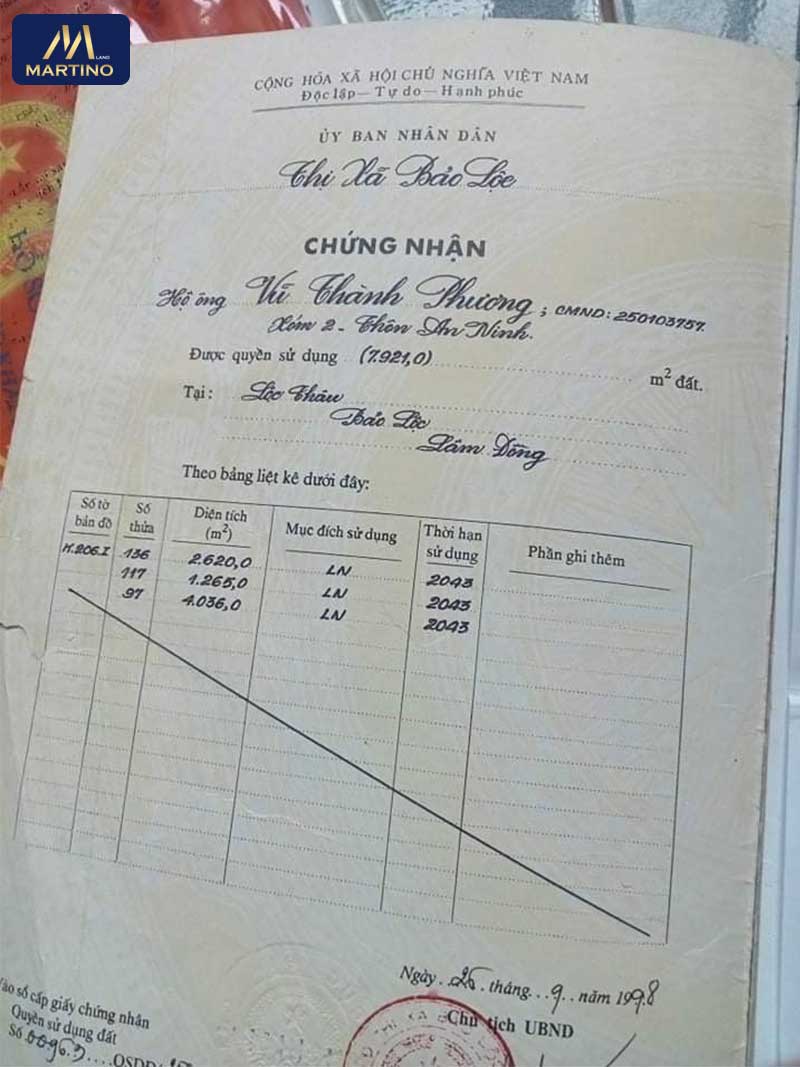 MARTINO
LAND
CỘNG HÒA XÃ HỘI CHỦ NGHĨA VIỆT NAM
Độc lập — Tự do — Hạnh phúc
ỦY BAN NHÂN DÂN
Thị Xã Bảo Lộc
CHỨNG NHẬN
Hộ ông Vũ Thành Phương ; CMND: 250103757.
Xóm 2 - Thôn An Ninh.
Được quyền sử dụng (7.921,0) m² đất.
Tại: Lộc Châu
Bảo Lộc
Lâm Đồng
Theo bảng liệt kê dưới đây:
Số tờ bản đồ Số thửa Diện tích (m²) Mục đích sử dụng Thời hạn sử dụng Phần ghi thêm
H.206.I 136 2.620,0 LN 2043
117 1.265,0 LN 2043
97 4.036,0 LN 2043
Ngày 26 tháng 9 năm 1998
Chủ tịch UBND
Vào sổ cấp giấy chứng nhân
Quyền sử dụng đất
Số 00963 QSDĐ